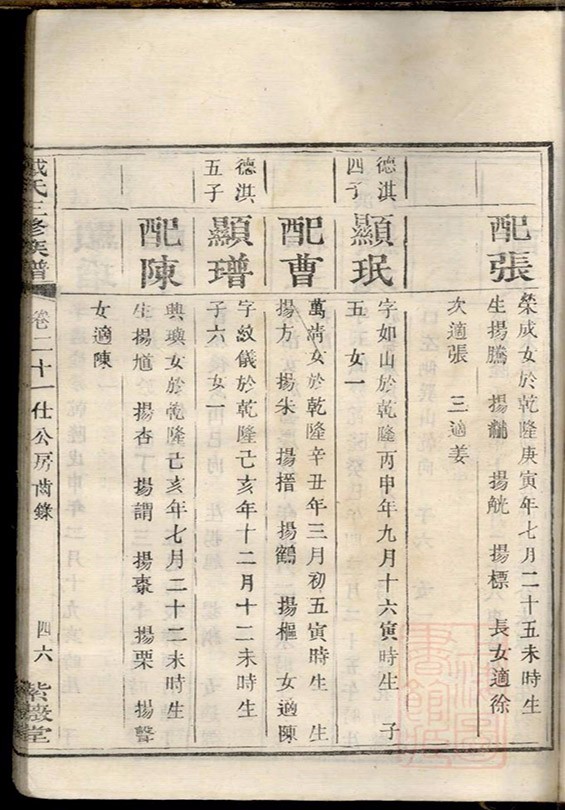 配張
榮成女於乾隆庚寅年七月二十五未時生
生揚騰 揚黼 揚觥 揚標 長女適徐
次適張 三適姜
德淇
四子
顯珉
字如山於乾隆丙申年九月十六寅時生 子
五 女一
配曹
萬清女於乾隆辛丑年三月初五寅時生 生
揚方 揚朱 揚搢 揚鶴 揚樞 女適陳
德淇
五子
顯璔
字儀於乾隆己亥年十二月十二未時生
子六 女一
配陳
興璵女於乾隆己亥年七月二十二未時生
生揚馗 揚杏 揚謂 揚棗 揚栗 揚聲
女適陳
氏三修族譜
卷二十一仕公房齒錄
四六
紫薇堂